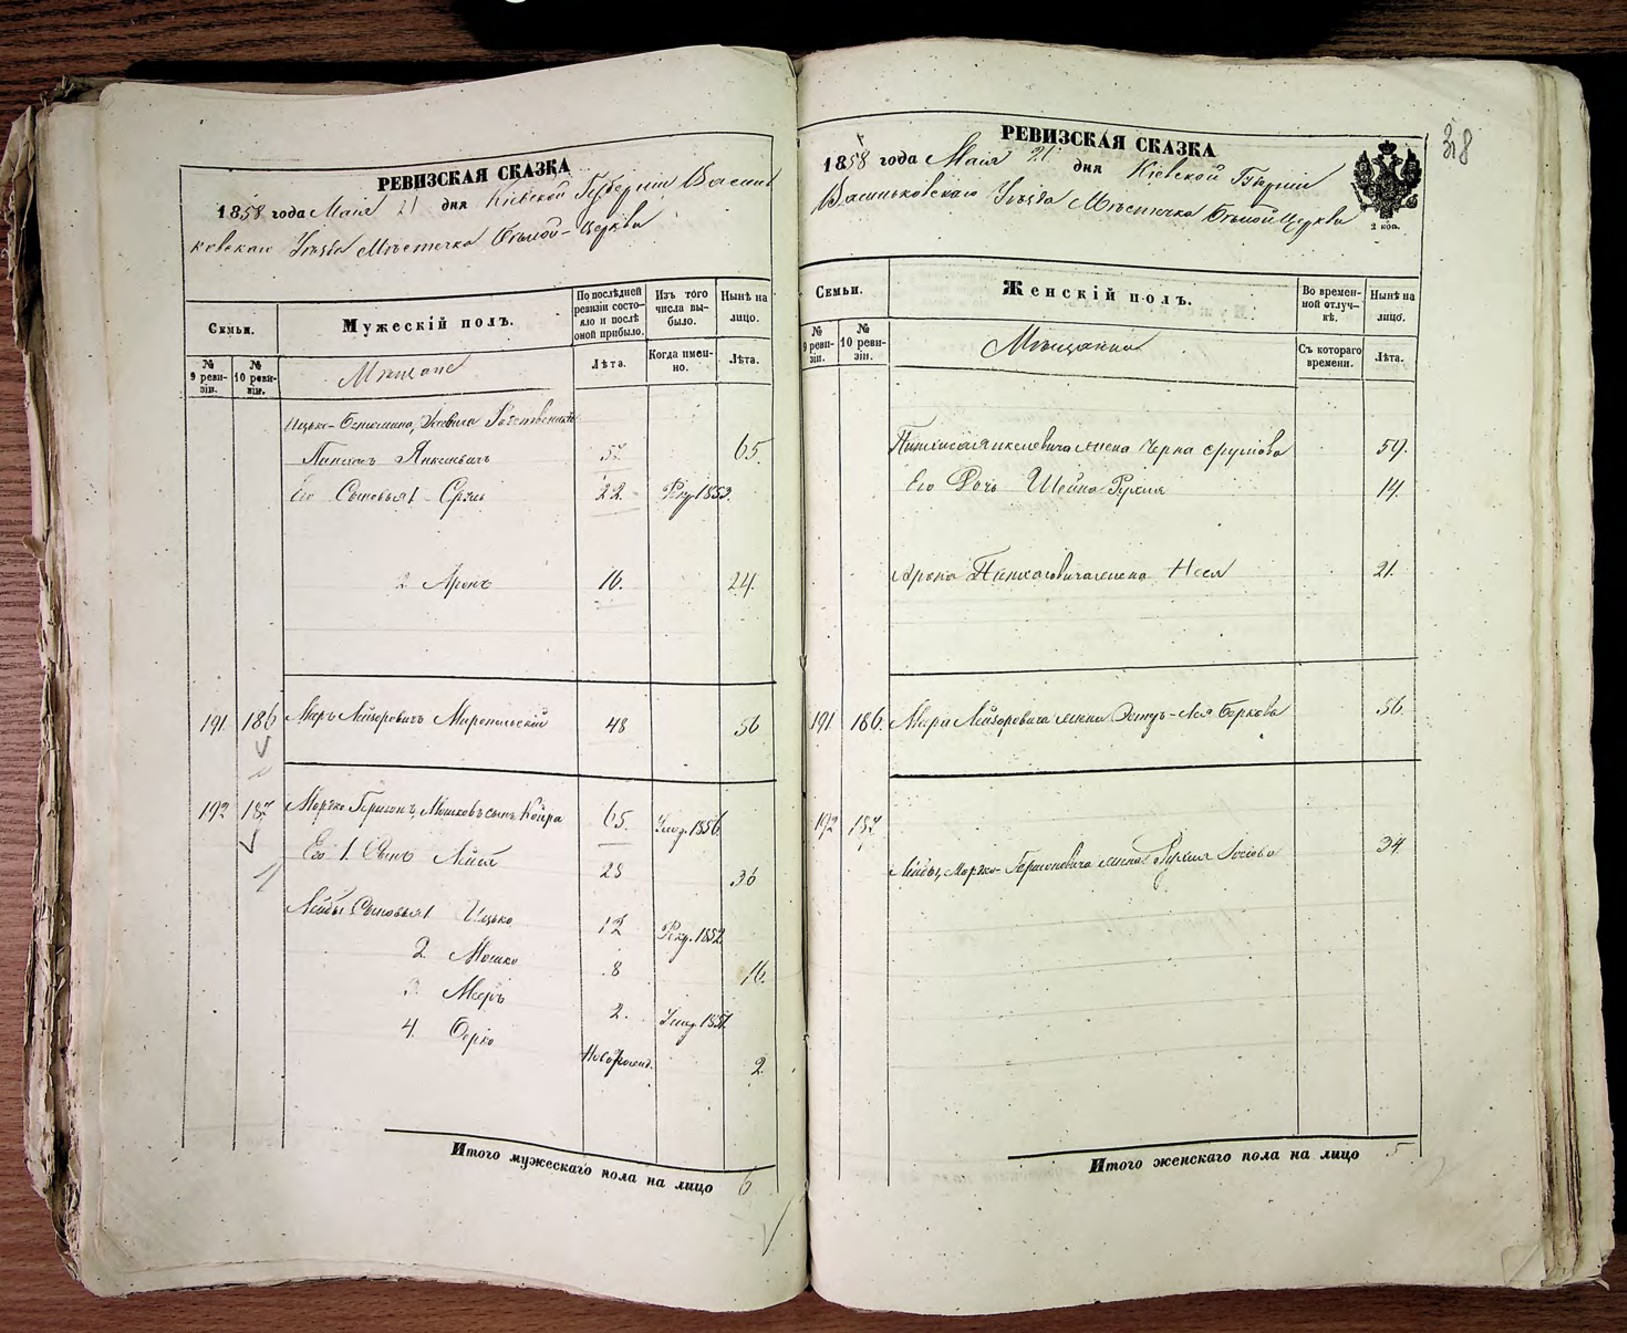 РЕВИЗСКАЯ СКАЗКА
1858 года Маія 21 дня Кіевской Губерніи Василь
ковскаго Уѣзда Мѣстечка Бѣлой-Церкви
Семьи.
Мужескій полъ.
По послѣдней ревизіи состояло и послѣ оной прибыло.
Изъ того числа выбыло.
Нынѣ на лицо.
№ 9 ревизіи.
№ 10 ревизіи.
Мѣщане
Лѣта.
Когда именно.
Лѣта.
Ицько-
Пинхасъ Янкелевичъ 57. 65.
Его Сыновья 1 Сруль 22. Рекр. 1853.
2. Аронъ 16. 24.
191 186 Меръ Лейзоровичъ 48 56
192 187 Мошковъ сынъ 65. Умер. 1856.
Его 1. Сынъ Лейба 28 36
Лейбы Сыновья 1 Ицько 12 Рекр. 1852.
2. Мошко 8 16.
3. Мееръ 2. Умер. 1851.
4. Берко Новорожд. 2.
Итого мужескаго пола на лицо 6
РЕВИЗСКАЯ СКАЗКА
38
1858 года Маія 21 дня Кіевской Губерніи
Васильковскаго Уѣзда Мѣстечка Бѣлой Церкви
2 коп.
Семьи.
Женскій полъ.
Во временной отлучкѣ.
Нынѣ на лицо.
№ 9 ревизіи.
№ 10 ревизіи.
Мѣщанки
Съ котораго времени.
Лѣта.
Пинхаса Янкелевича жена Черна Срулова 59.
Его Дочь Шейна-Рухля 14.
Арона Пинхасовича жена Неся 21.
191 186. Мера Лейзоровича жена Эстеръ-Лея Беркова 56.
192 187.
Лейбы, Гершоновича жена Рухля 34.
Итого женскаго пола на лицо 5